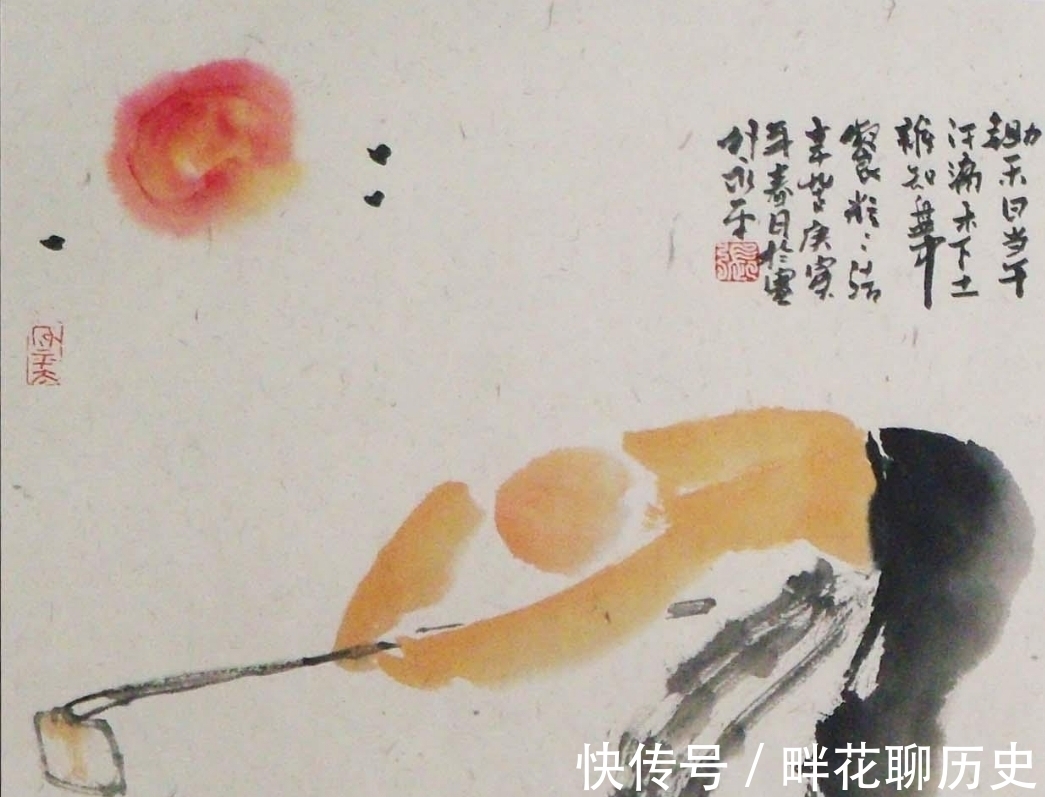 锄禾日当午
汗滴禾下土
谁知盘中
餐粒々皆
辛苦庚寅
年春日於
永平
快传号 / 畔花聊历史